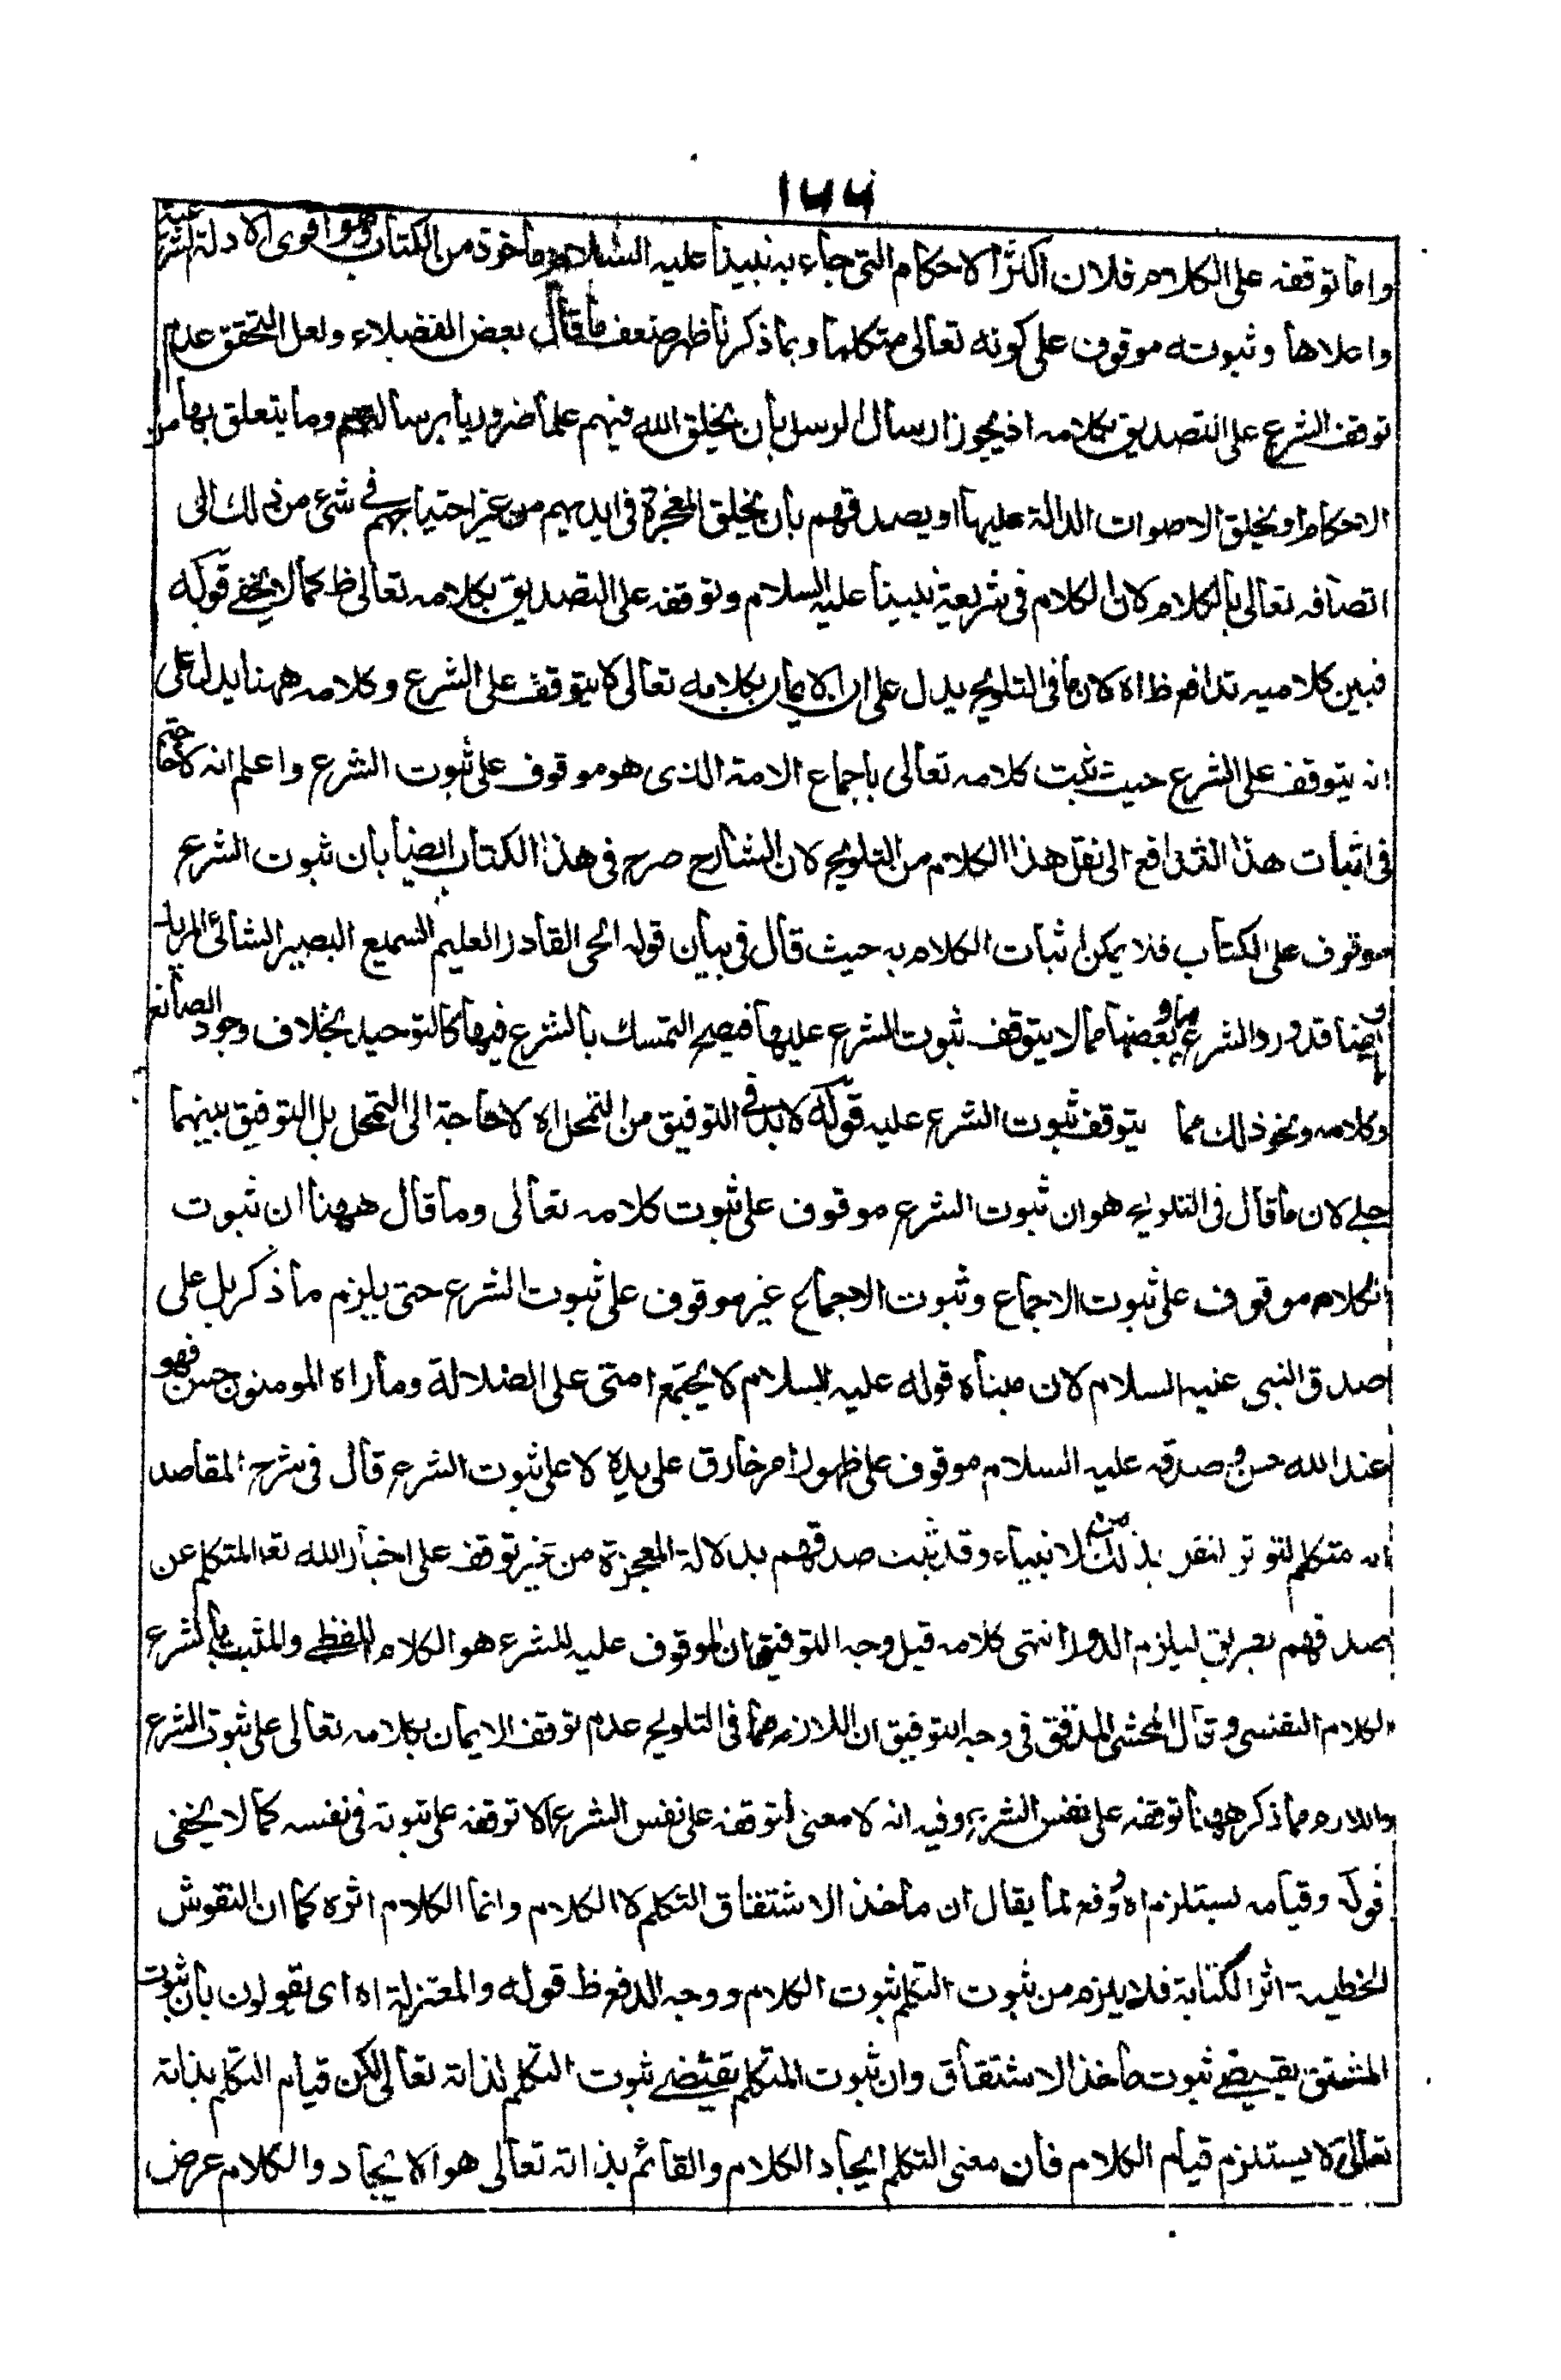 ١٦٦
واما توقفه على الكلام فلان اكثر الاحكام التى جاء به نبينا عليه السلام ماخوذ من الكتاب وهو اقوى الادلة الشرعية
واعلاها وثبوته موقوف على كونه تعالى متكلما وبما ذكرنا ظهر ضعف ما قال بعض الفضلاء ولعل التحقق عدم
توقف الشرع على التصديق بكلامه اذ يجوز ارسال الرسل بان يخلق الله فيهم علما ضروريا برسالتهم وما يتعلق بها من
الاحكام او يخلق الاصوات الدالة عليها او يصدقهم بان يخلق المعجزة فى ايديهم من غير احتياجهم فى شئ من ذلك الى
اتصافه تعالى بالكلام لان الكلام فى شريعة نبينا عليه السلام وتوقفه على التصديق بكلامه تعالى ظ كما لا يخفى قوله
فبين كلاميه تدافع ظ اه لان ما فى التلويح يدل على ان الايمان بكلامه تعالى لا يتوقف على الشرع وكلامه ههنا يدل على
انه يتوقف على الشرع حيث ثبت كلامه تعالى باجماع الامة الذى هو موقوف على ثبوت الشرع واعلم انه لا حاجة
فى اثبات هذا التدافع الى نقل هذا الكلام من التلويح لان الشارح صرح فى هذا الكتاب ايضا بان ثبوت الشرع
موقوف على الكتاب فلا يمكن اثبات الكلام به حيث قال فى بيان قوله الحى القادر العليم السميع البصير الشائى المريد
وايضا قد ورد الشرع بها وبعضها مما لا يتوقف ثبوت الشرع عليها فيصح التمسك بالشرع فيها كالتوحيد بخلاف وجود الصانع
وكلامه ونحو ذلك مما يتوقف ثبوت الشرع عليه قوله لا بد فى التوفيق من التمحل اه لا حاجة الى التمحل بل التوفيق بينهما
جلے لان ما قال فى التلويح هو ان ثبوت الشرع موقوف على ثبوت كلامه تعالى وما قال ههنا ان ثبوت
الكلام موقوف على ثبوت الاجماع وثبوت الاجماع غير موقوف على ثبوت الشرع حتى يلزم ما ذكر بل على
صدق النبى عليه السلام لان مبناه قوله عليه السلام لا يجتمع امتى على الضلالة وما راه المومنون حسن فهو
عند الله حسن وصدقه عليه السلام موقوف على ظهور امر خارق على يده لا على ثبوت الشرع قال فى شرح المقاصد
انه متكلم لتواتر النقل بذلك من الانبياء وقد ثبت صدقهم بدلالة المعجزة من غير توقف على اخبار الله تعا المتكلم عن
صدقهم بطريق ليلزم الدور انتهى كلامه قيل وجه التوفيق بان الموقوف عليه للشرع هو الكلام اللفظے والمثبت بالشرع
الكلام النفسى وقال المحشى المدقق فى وجه التوفيق ان اللازم مما فى التلويح عدم توقف الايمان بكلامه تعالى على ثبوت الشرع
واللازم مما ذكر ههنا توقفه على نفس الشرع وفيه انه لا معنى لتوقفه على نفس الشرع الا توقفه على ثبوته فى نفسه كما لا يخفى
قوله وقيامه يستلزم اه دفع لما يقال ان ماخذ الاشتقاق التكلم لا الكلام وانما الكلام اثره كما ان النقوش
الخطية اثر الكتابة فلا يلزم من ثبوت التكلم ثبوت الكلام ووجه الدفع ظ قوله والمعتزلة اه اى يقولون بان ثبوت
المشتق يقتضے ثبوت ماخذ الاشتقاق وان ثبوت المتكلم يقتضے ثبوت التكلم لذاته تعالى لكن قيام التكلم بذاته
تعالى لا يستلزم قيام الكلام فان معنى التكلم ايجاد الكلام والقائم بذاته تعالى هو الايجاد والكلام عرض